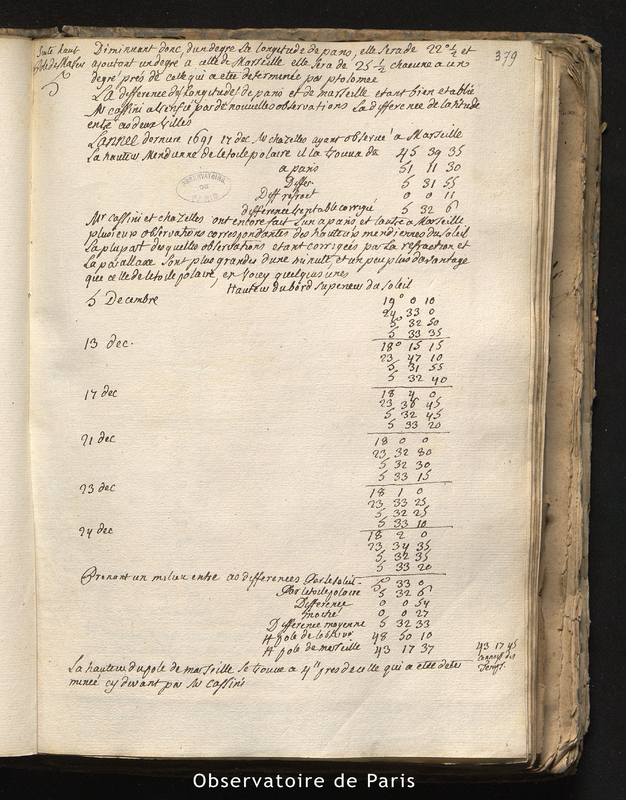 379
Suite haut
Diminuant donc, d'un degré La longitude de paris, elle sera de 22° ½ et
ajoutant un degré a celle de Marseille elle sera de 25 ½ chacune a un
degré prés de celle qui a eté determinée par ptolomée
La difference des Longitudes de paris et de marseille etant bien etablie
Mr cassini a verifié par de nouvelles observations La difference de latitude
entre ces deux villes
L'année derniere 1691 17 dec Mr chazelles ayant observé a Marseille
La hauteur meridienne de letoile polaire il la trouva de 45 39 35
a paris 51 11 30
OBSERVATOIRE
DE
PARIS
Differ 5 31 55
Diff refract 0 0 11
difference veritable corrigée 5 32 6
Mr cassini et chazelles ont encore fait l'un a paris et l'autre a Marseille
plusieurs observations correspondantes des hauteurs meridiennes du soleil
La plupart desquelles observations etant corrigées par La refraction et
La parallaxe sont plus grandes d'une minute et un peu plus davantage
que celle de letoile polaire, en voicy quelques unes
Hauteur du bord superieur du soleil
5 Decembre 19° 0 10
24 33 0
5° 32 50
5 33 35
13 dec. 18° 15 15
23 47 10
5 31 55
5 32 40
17 dec 18 4 0
23 36 45
5 32 45
5 33 20
21 dec 18 0 0
23 32 30
5 32 30
5 33 15
23 dec 18 1 0
23 33 25
5 32 25
5 33 10
24 dec 18 2 0
23 34 35
5 32 35
5 33 20
Prenant un milieu entre ces differences Par le soleil 5° 33 0
Par letoile polaire 5 32 6
Difference 0 0 54
moitié 0 0 27
Difference moyenne 5 32 33
H pole de lobser 48 50 10
H pole de marseille 43 17 37
43 17 45
connoiss des
temps.
La hauteur du pole de marseille se trouve a 4" pres de celle qui a eté deter
minée cy devant par Mr Cassini
Observatoire de Paris